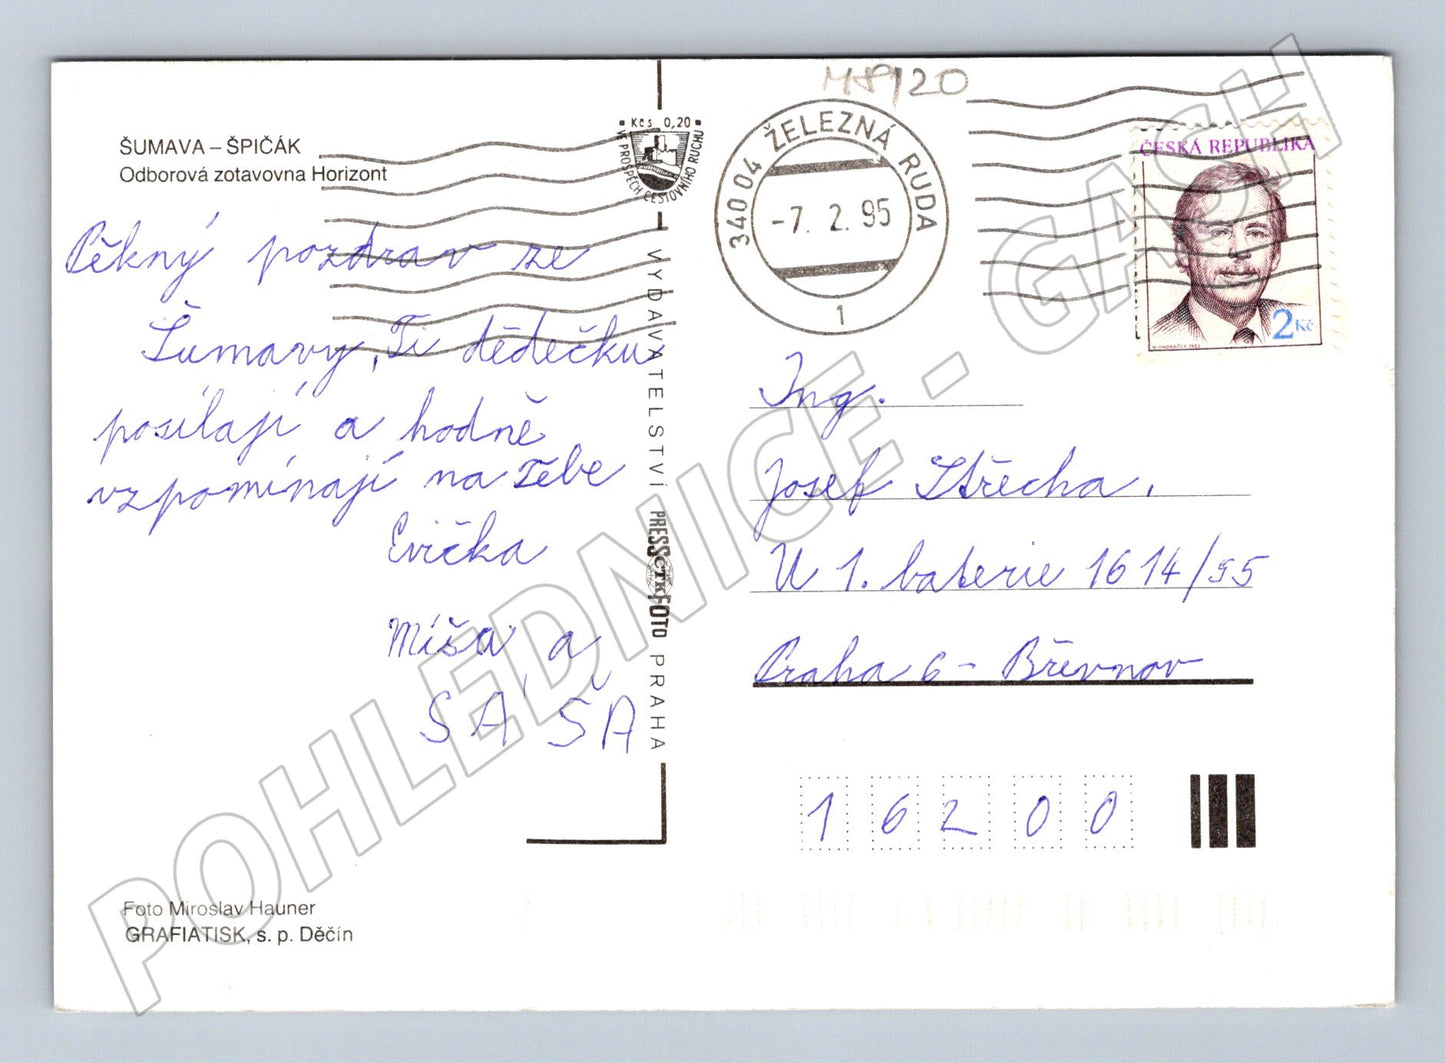 ŠUMAVA – ŠPIČÁK
Odborová zotavovna Horizont
Pěkný pozdrav ze
Šumavy, Ti dědečku
posílají a hodně
vzpomínají na Tebe
Evička
Míša a
SÁŠA
Foto Miroslav Hauner
GRAFIATISK, s. p. Děčín
Kčs 0,20
VE PROSPĚCH CESTOVNÍHO RUCHU
VYDAVATELSTVÍ PRESSFOTO PRAHA
ČTK
M8920
34004 ŽELEZNÁ RUDA
-7. 2. 95
1
ČESKA REPUBLIKA
2 Kč
Ing.
Josef Střecha,
U 1. baterie 1614/95
Praha 6 – Břevnov
16200
POHLEDNICE - GASH